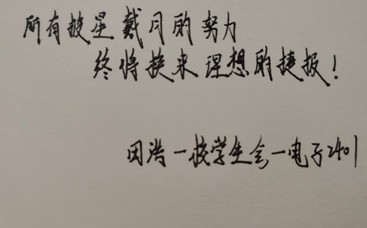 所有披星戴月的努力
终将换来理想的捷报！
因浩一校学生会一电子2401